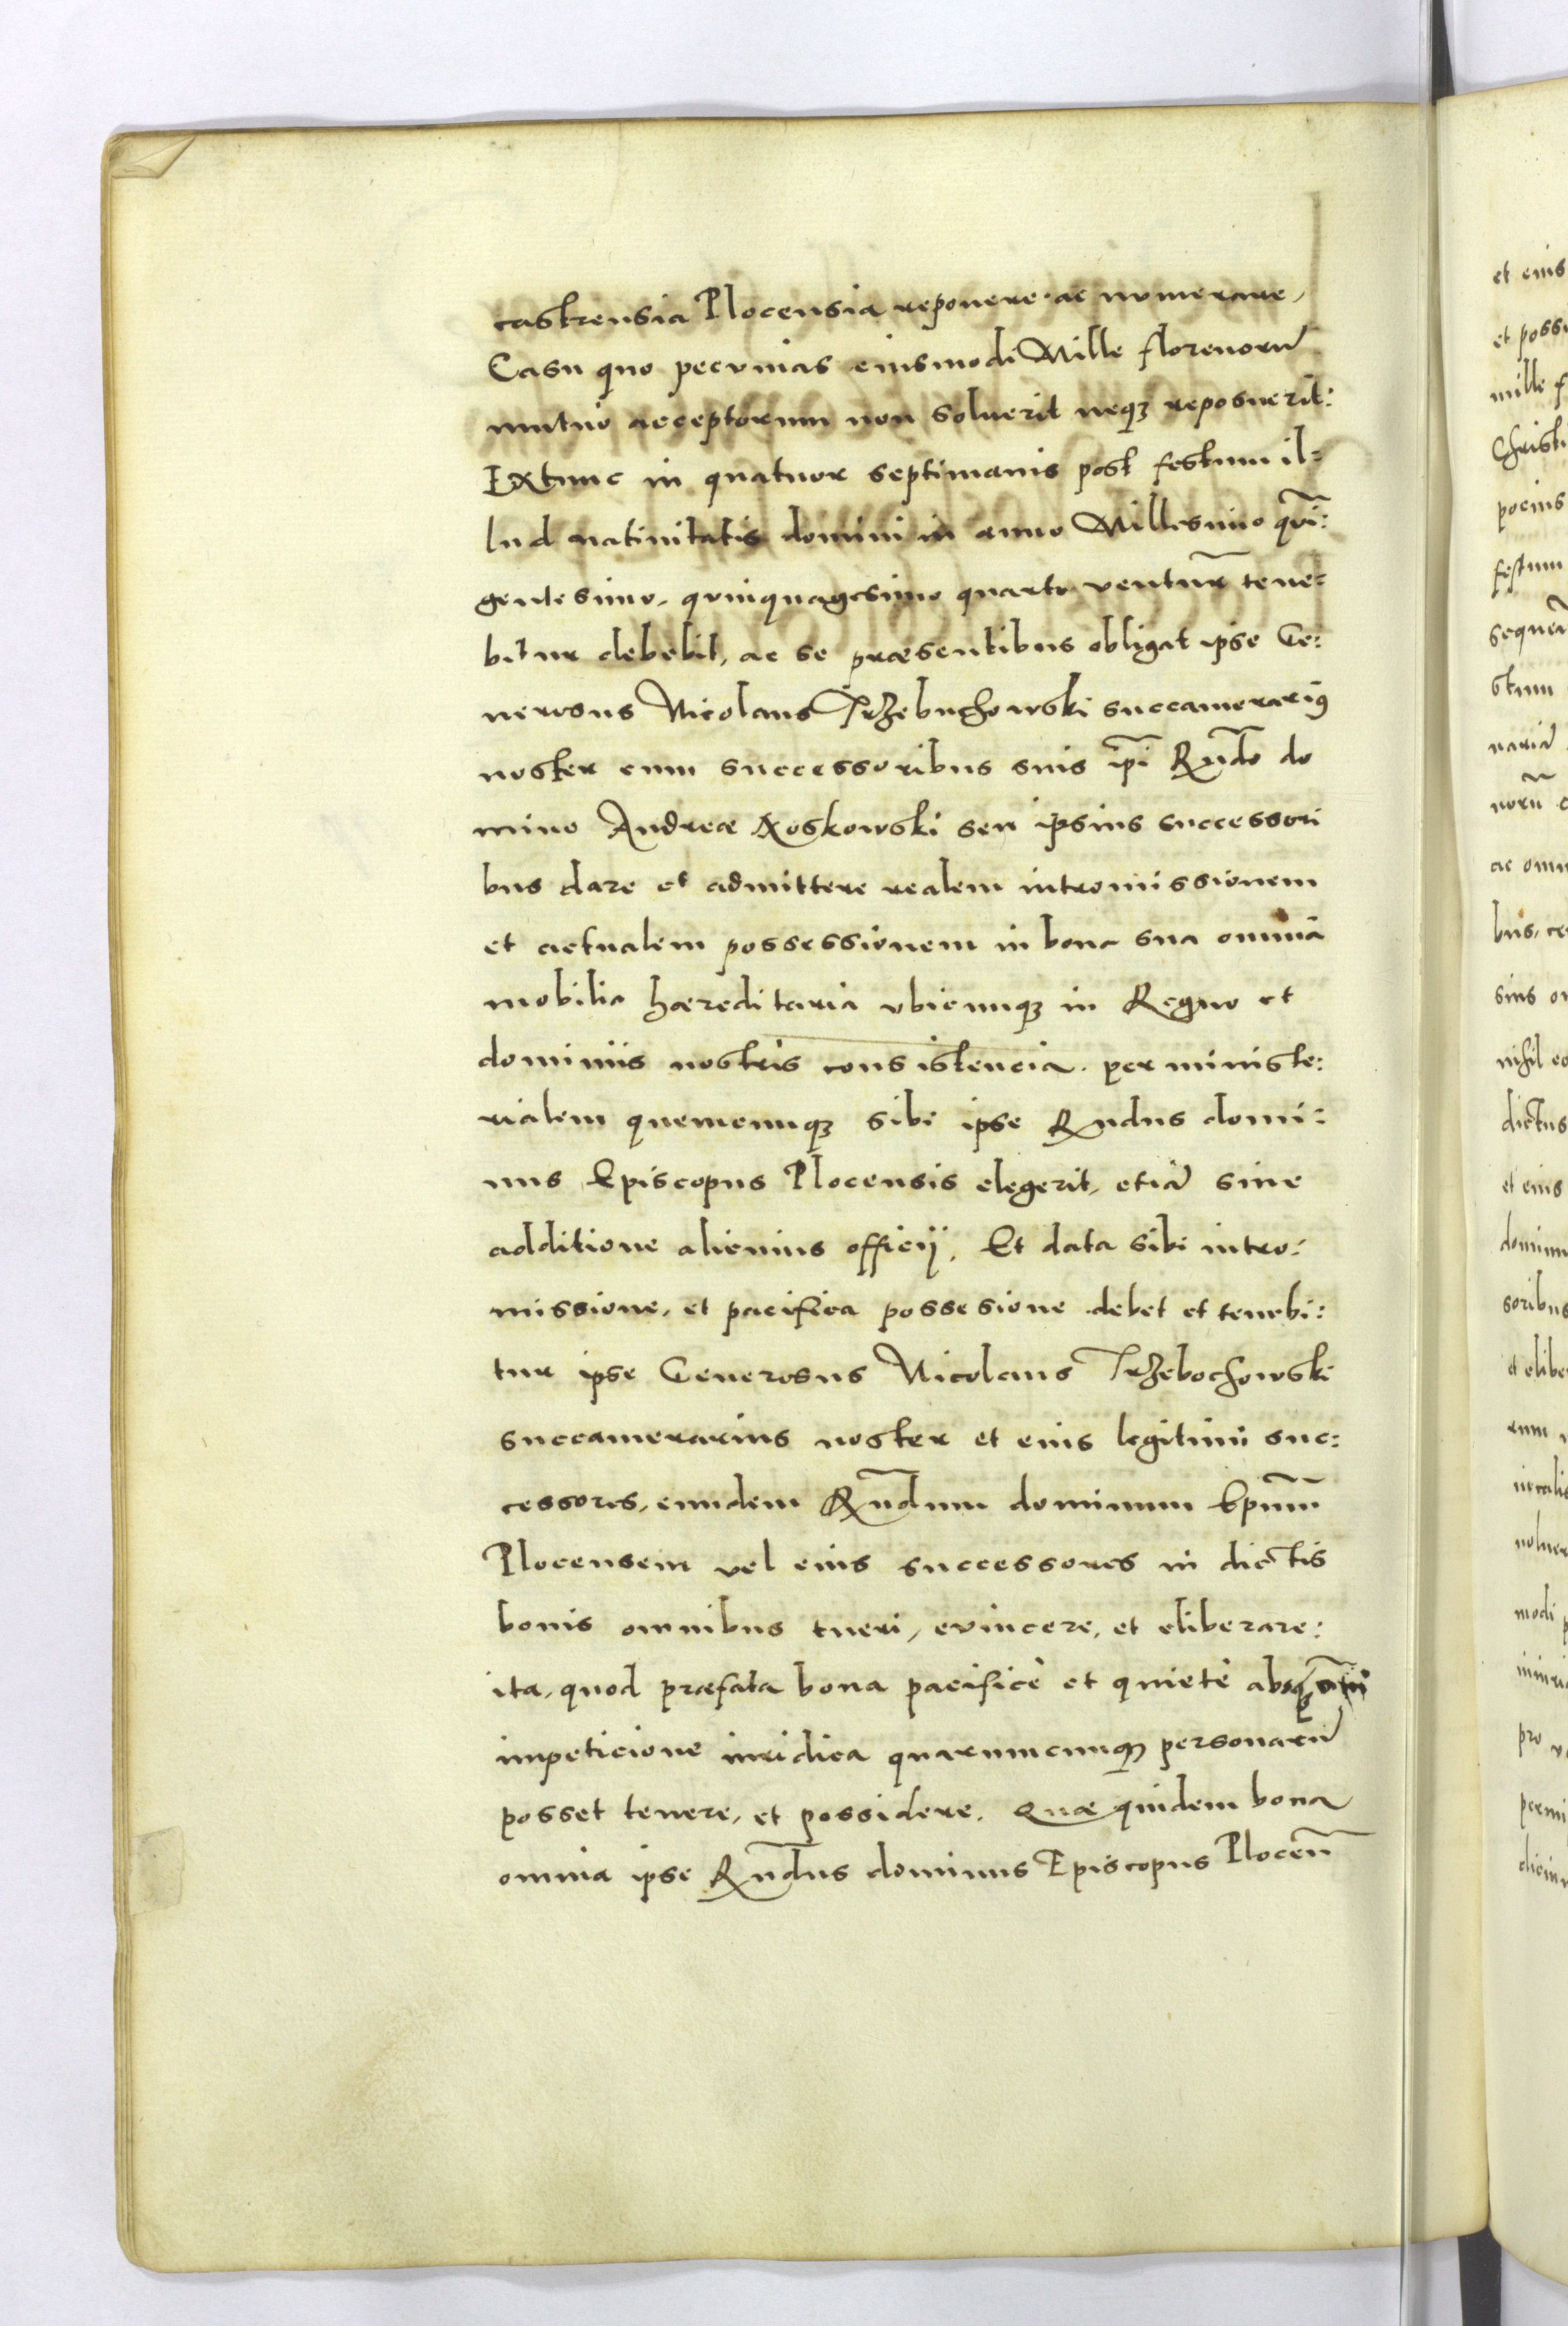 castrensia Plocensia reponere. ac numerare,
Casu quo pecunias eiusmodi Mille florenorũ
mutuo acceptorum non soluerit neqʒ reposuerit:
Extunc in quatuor septimanis post festum il:
lud natiuitatis domini in anno Millesimo qũi:
gentesimo, quinquagesimo quarto ventur̃ tene:
bitur debebit, ac se præsentibus obligat ipse Ge:
nerosus Nicolaus Trzebuchowski succamerariꝰ
noster cum successoribus suis ip̃i Rñdo do
mino Andreæ Noskowski seu ipsius successori
bus dare et admittere realem intromissionem
et actualem possessionem in bona sua omnia
mobilia hæreditaria vbicunqʒ in Regno et
dominiis nostris consistencia. per ministe:
rialem quemcunqʒ sibi ipse Rndus domi:
nus Episcopus Plocensis elegerit, etiã sine
additione alicuius officij. Et data sibi intro:
missione, et pacifica possesione debet et tenebi:
tur ipse Generosus Nicolaus Trzebochowski
succamerarius noster et eius legitimi suc:
cessores, eundem Rñdum dominum Ep̃um
Plocensem vel eius successores in dictis
bonis omnibus tueri, evincere, et eliberare:
ita, quod præfata bona pacificè et quietè absqʒ
impeticione iuridica quarumcunqʒ personarũ
posset tenere, et possidere. Quæ quidem bona
omnia ipse Rñdus dominus Episcopus Ploceñ
et eius
et poss
mille f
Christi
pocius
festum
sequen
stum
nariã
norũ
ac omn
bus, ce
suis o
nihil eo
dictus
et eius
dominu
soribus
et elibe
rum
modi
pro
permi